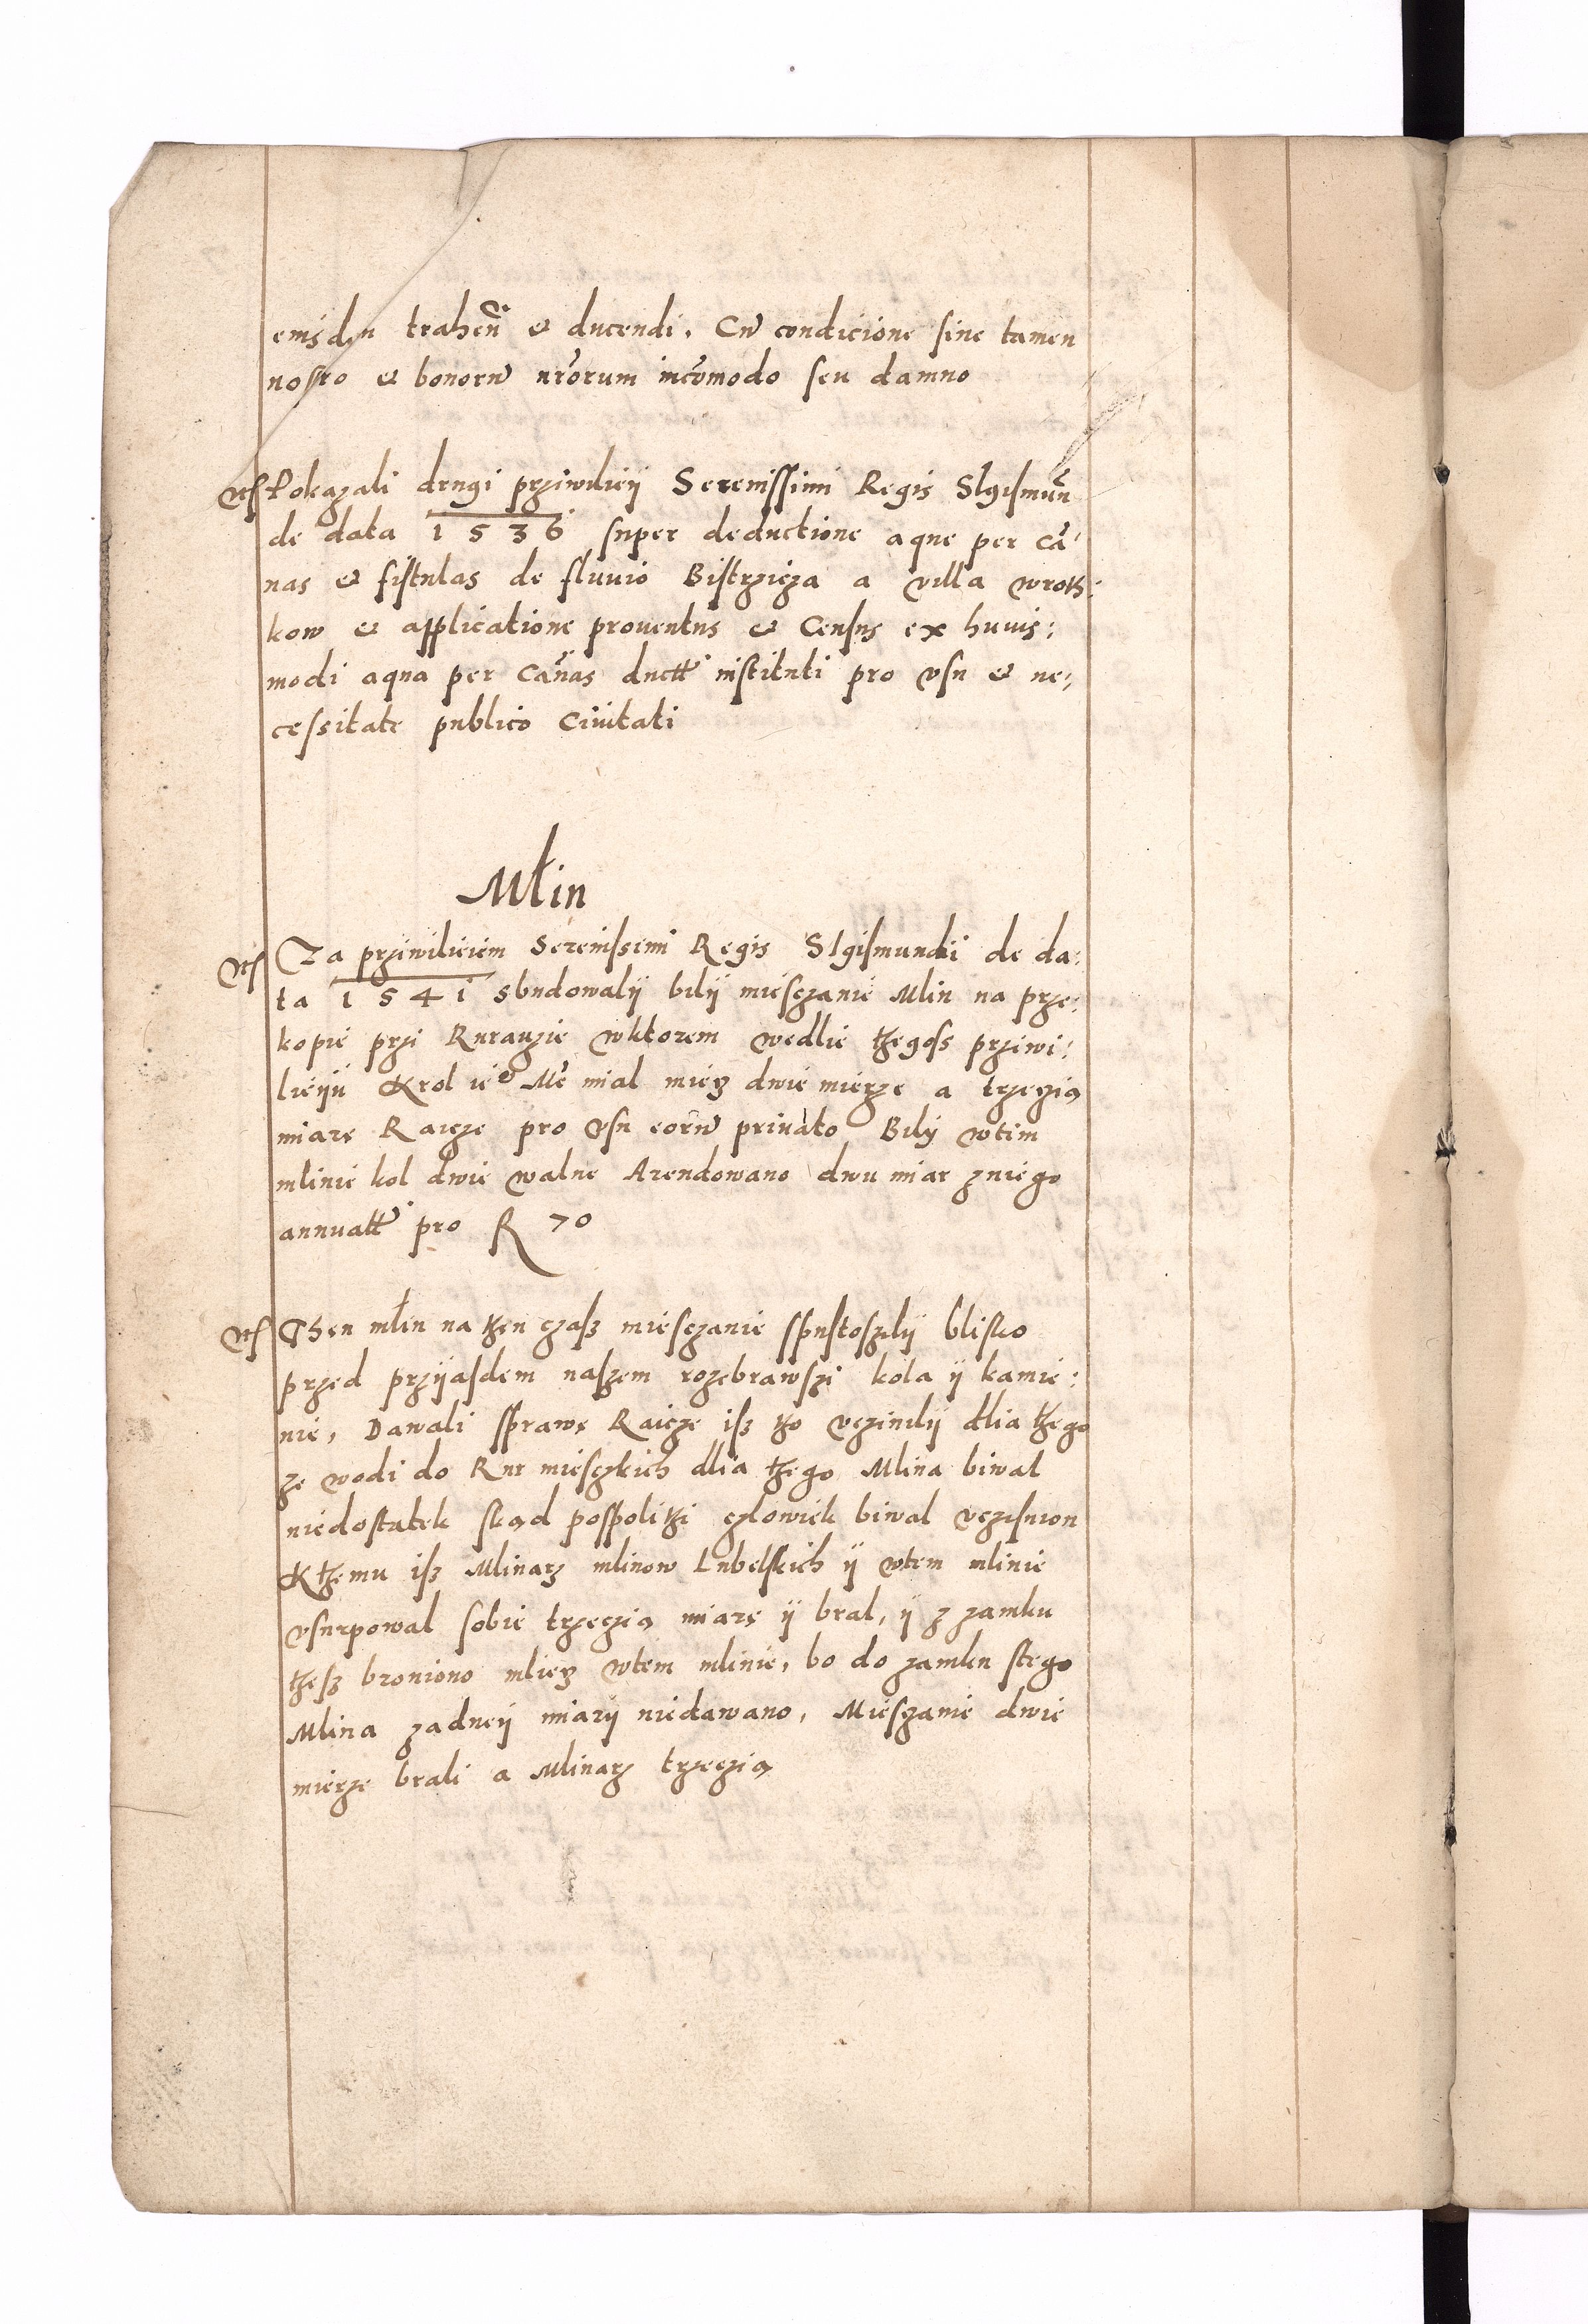 eiusdem trahen̄ & ducendi. Cū condicione sine tamen
nostro & bonorū nr̄orum incōmodo seu damno
Pokazali drugi prziwileÿ Serenissimi Regis SIgismun̄
de data 1536 super deductione aque per cā
nas & fistulas de fluuio Bistrzicza a villa wrotk:
kow & applicatione prouentus & Census ex huius:
modi aqua per Cānas duct̄ instituti pro vsu & ne:
cessitate publico Ciuitati
Młin
Za prziwileiem Serenissimi Regis SIgismundi de da:
ta 1541 sbudowalÿ bilÿ miesczanie Mlin na prze:
kopie przi Rurauzie wktorem wedlie thegoss prziwi:
lieÿu Krol ieº Mć mial miecz dwie mierze a trzeczią
miarę Raicze pro vsu eorū priuato Bilÿ wtim
mlinie kol dwie walne Arendowano dwu miar zniego
annuatt̄ pro R 70
Then młin na then czasz miesczanie spustoszilÿ blisko
przed prziiasdem naszem rozebrawszi kola ÿ kamie:
nie, Dawali sprawę Raicze isz tho vczinilÿ dlia thego
ze wodi do Rur miesczkich dlia thego Mlina biwal
niedostatek skąd pospolithi czlowiek biwal vczisnion
Kthemu isz Mlinarz mlinow Lubelskich ÿ wtem mlinie
vsurpowal sobie trzeczią miarę ÿ bral, ÿ z zamku
thesz broniono mliecz wtem mlinie, bo do zamku stego
Mlina zadneÿ miarÿ niedawano, Miesczanie dwie
mierze brali a Mlinarz trzeczią